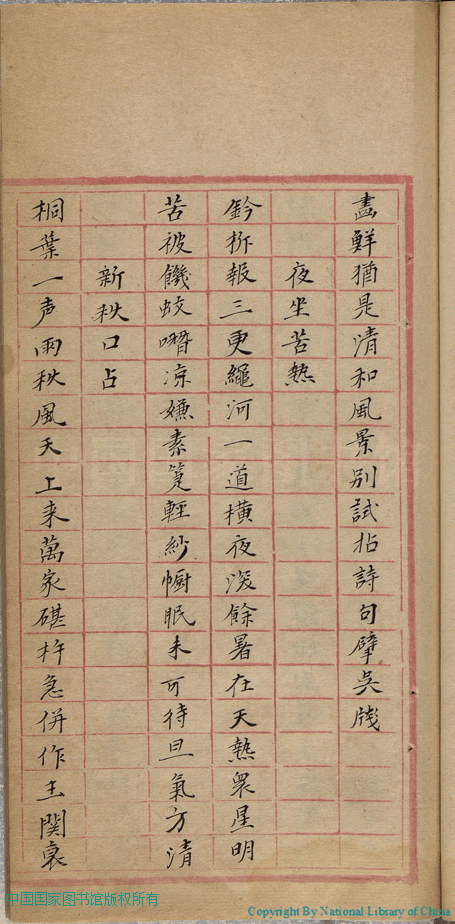 盡鮮猶是清和風景別試拈詩句擘吳牋
夜坐苦熱
鈴柝報三更繩河一道橫夜深餘暑在天熱衆星明
苦被饑蚊噆凉嫌素箑輕紗幮眠未可待旦氣方清
新秋口占
桐葉一声雨秋風天上来萬家碪杵急併作玉関哀
中国国家图书馆版权所有
Copyright By National Library of China